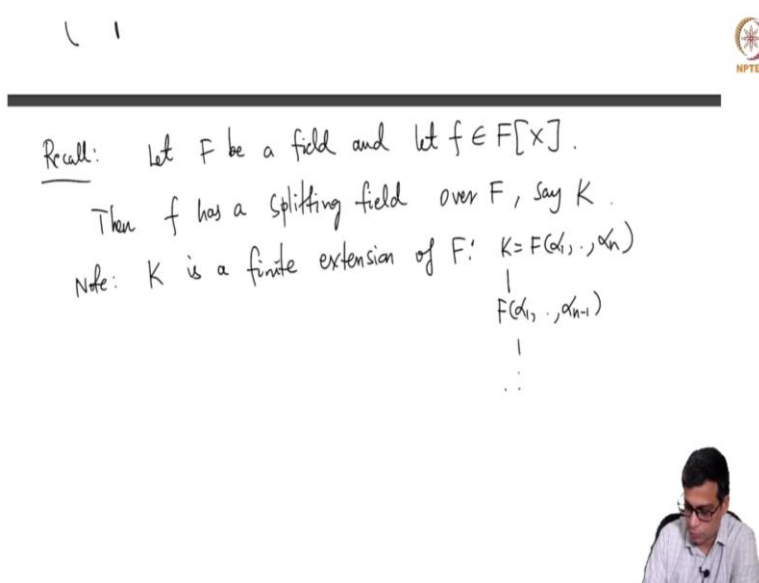 NPTE
Recall: Let F be a field and let f ∈ F[X].
Then f has a splitting field over F, say K.
Note: K is a finite extension of F: K = F(α₁, ., αₙ)
|
F(α₁, ., αₙ₋₁)
|
⋮